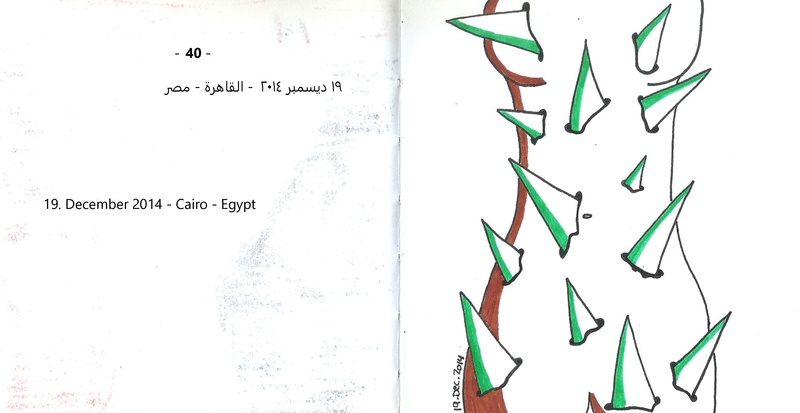 - 40 -
١٩ ديسمبر ٢٠١٤ - القاهرة - مصر
19. December 2014 - Cairo - Egypt
19.DEC.2014